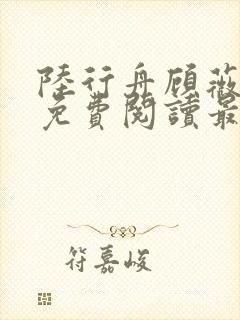 陸行舟顾薇
免費閱讀最
符嘉峻